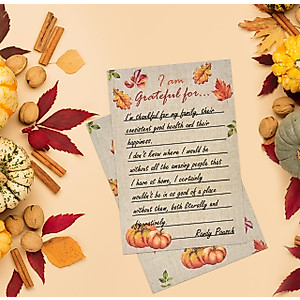 I am
Grateful for...
I'm thankful for my family, their
consistent good health and their
happiness.
I don't know where I would be
without all the amazing people that
I have at home, I certainly
wouldn't be in as good of a place
without them, both literally and
figuratively.
Rudy Pausch